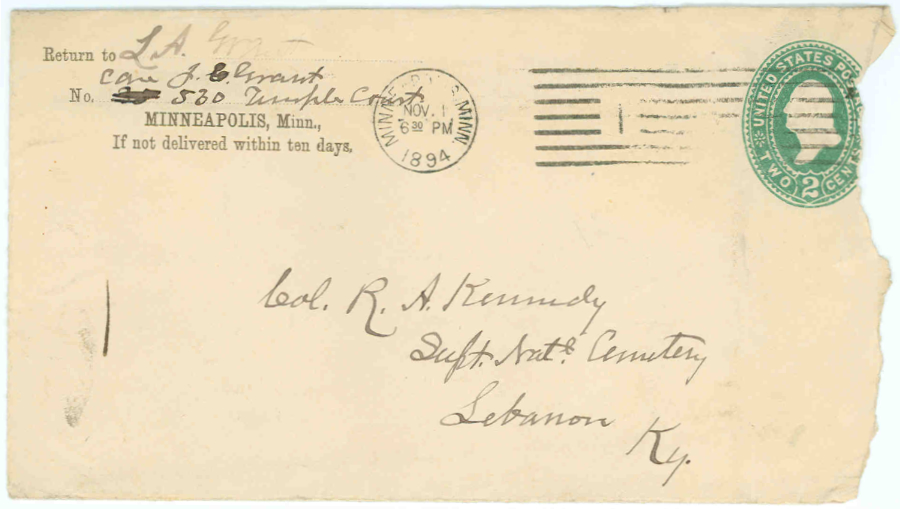 Return to L. A. Grant
care J. C. Grant
No. 530 Temple Court
MINNEAPOLIS, Minn.,
If not delivered within ten days.
MINNEAPOLIS, MINN.
NOV. 1
6 30 PM
1894
1
UNITED STATES PO
TWO 2 CENTS
Col. R. A. Kennedy
Supt. Natl. Cemetery
Lebanon
Ky.